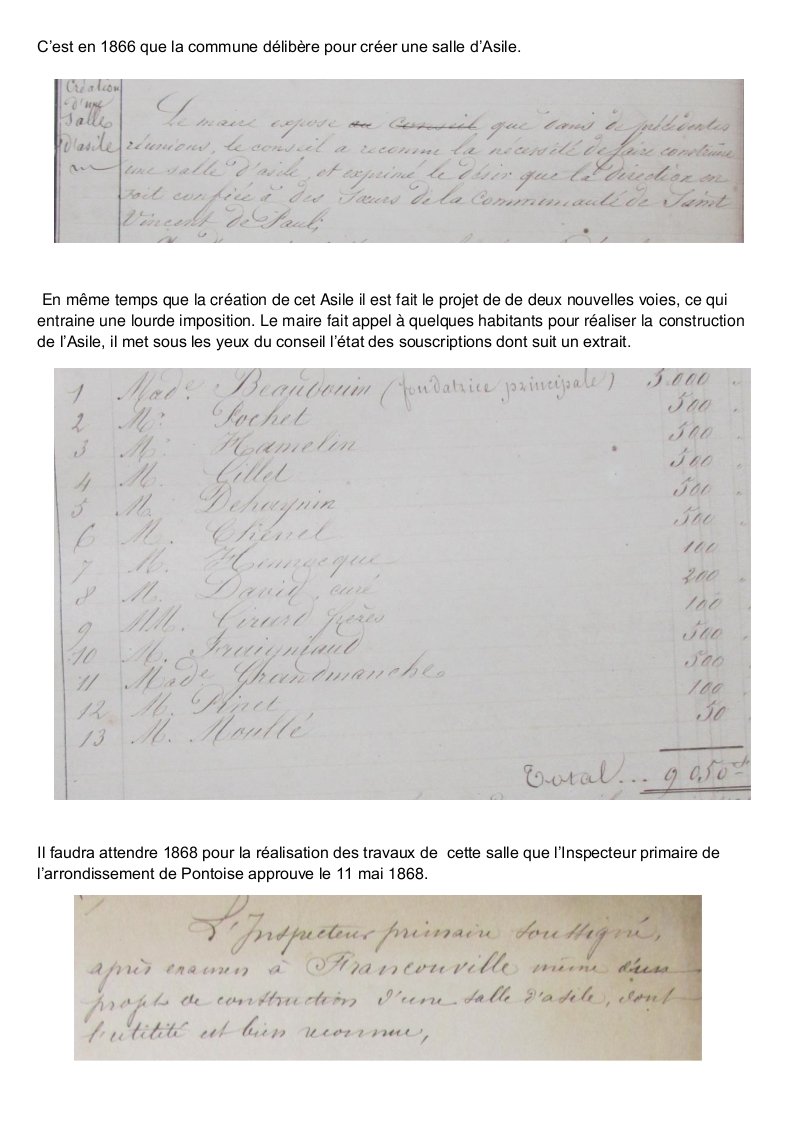 C’est en 1866 que la commune délibère pour créer une salle d’Asile.
Création
d'une
Salle
d'asile
Le maire expose au Conseil que dans de précédentes
réunions, le conseil a reconnu la nécessité de faire construire
une salle d'asile, et exprimé le désir que la direction en
soit confiée à des Sœurs de la Communauté de Saint
Vincent de Paul;
En même temps que la création de cet Asile il est fait le projet de de deux nouvelles voies, ce qui
entraine une lourde imposition. Le maire fait appel à quelques habitants pour réaliser la construction
de l’Asile, il met sous les yeux du conseil l’état des souscriptions dont suit un extrait.
1 Made. Beaudouin (fondatrice principale) 5.000
2 Mr. Fochet 500
3 M. Hamelin 500
4 M. Gillet 500
5 M. Dehaynin 500
6 M. Chenel 500
7 M. Hennocque 100
8 M. David, curé 200
9 MM. Girard frères 100
10 M. Fraigniaud 500
11 Made Grandmanche 500
12 M. Pinet 100
13 M. Moullé 50
Total... 9050f
Il faudra attendre 1868 pour la réalisation des travaux de cette salle que l’Inspecteur primaire de
l’arrondissement de Pontoise approuve le 11 mai 1868.
L'Inspecteur primaire soussigné,
après examen à Franconville même d'un
projet de construction d'une salle d'asile, dont
l'utilité est bien reconnue,